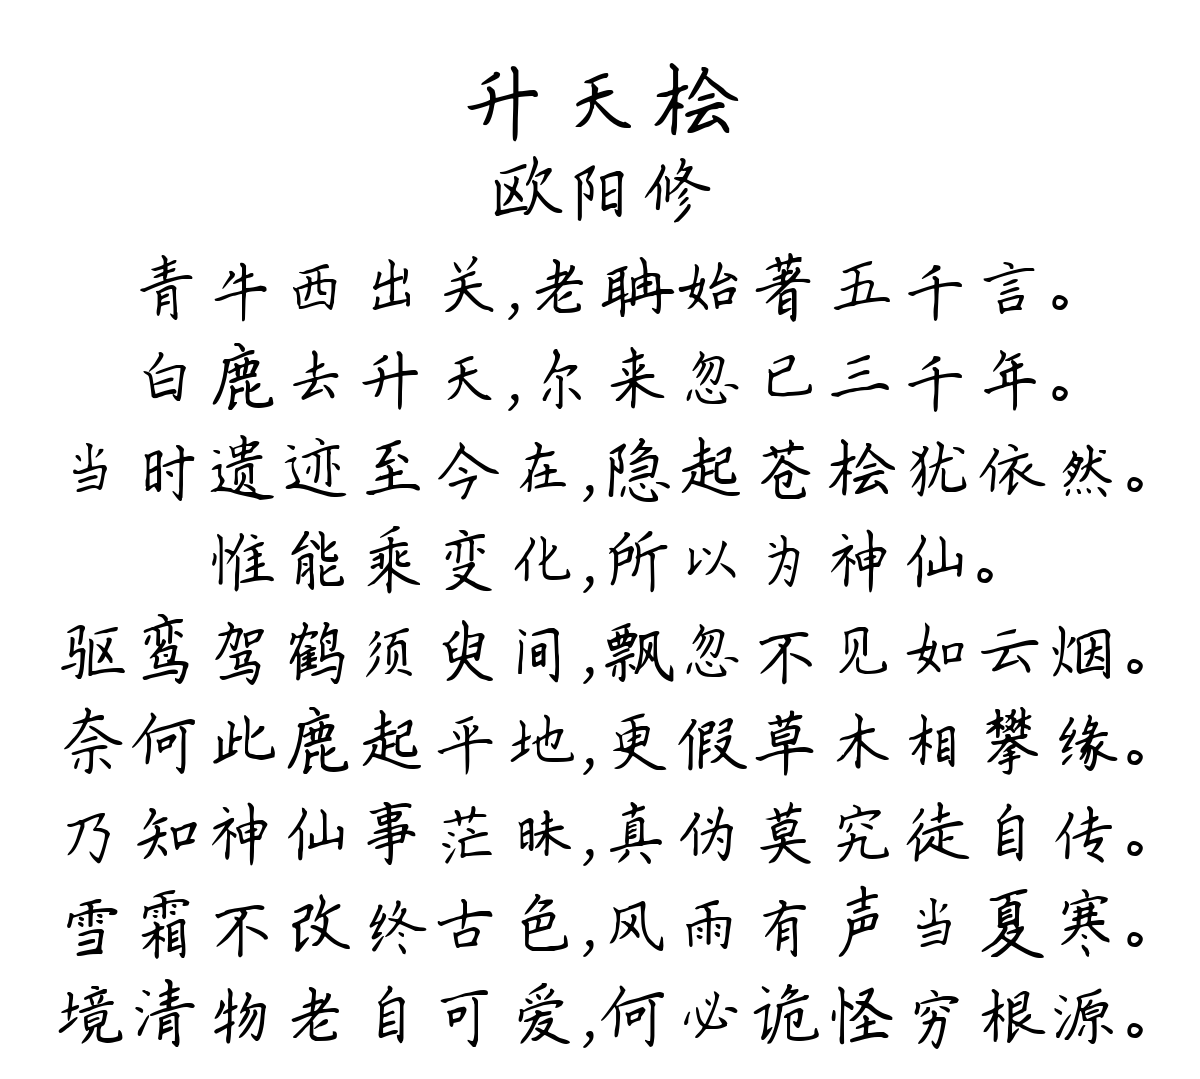 升天桧
欧阳修
青牛西出关,老聃始著五千言。
白鹿去升天,尔来忽已三千年。
当时遗迹至今在,隐起苍桧犹依然。
惟能乘变化,所以为神仙。
驱鸾驾鹤须臾间,飘忽不见如云烟。
奈何此鹿起平地,更假草木相攀缘。
乃知神仙事茫昧,真伪莫究徒自传。
雪霜不改终古色,风雨有声当夏寒。
境清物老自可爱,何必诡怪穷根源。